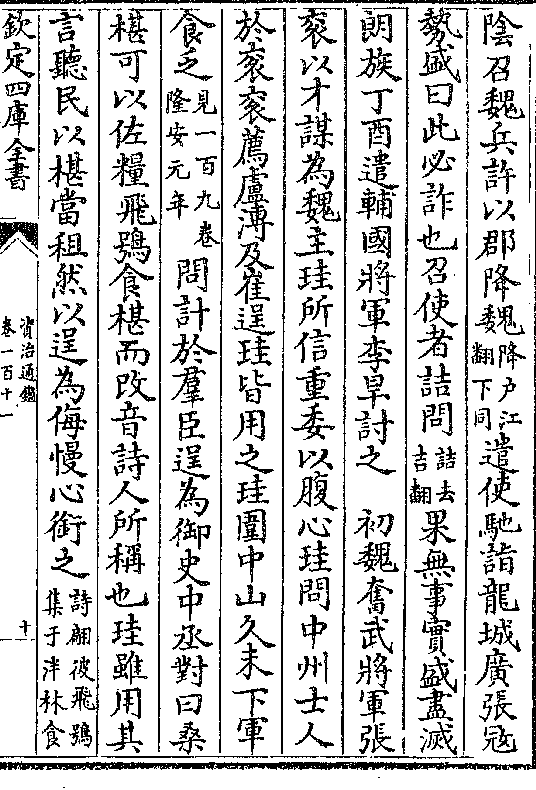 陰召魏兵許以郡降魏降戶江翻下同遣使馳詣龍城廣張冦
勢盛曰此必詐也召使者詰問詰去吉翻果無事實盛盡滅
朗族丁酉遣輔國將軍李旱討之　初魏奮武將軍張
衮以才謀為魏主珪所信重委以腹心珪問中州士人
於衮衮薦盧溥及崔逞珪皆用之珪圍中山久未下軍
食乏見一百九卷隆安元年問計於羣臣逞為御史中丞對曰桑
椹可以佐糧飛鴞食椹而改音詩人所稱也珪雖用其
言聽民以椹當租然以逞為侮慢心銜之詩翩彼飛鴞集于泮林食
欽定四庫全書
資治通鑑
卷一百十一
十